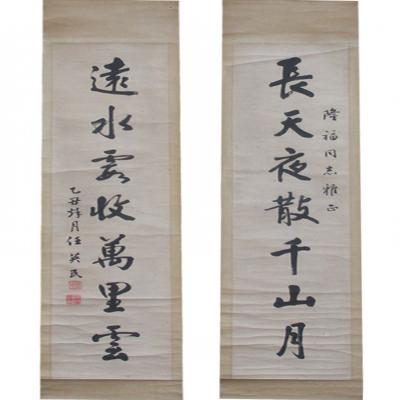 長天夜散千山月
隆福同志雅正
遠水霞收萬里雲
乙丑月任英民